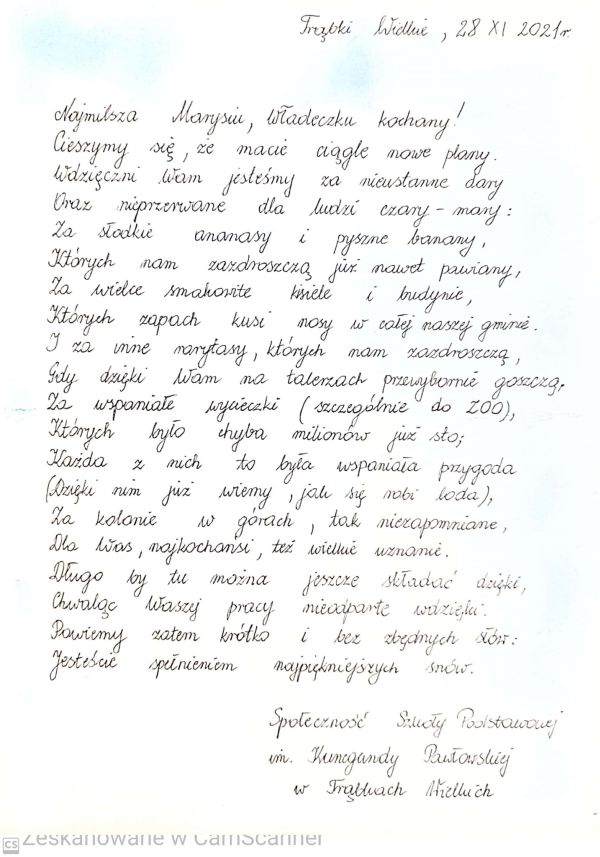 Trąbki Wielkie, 28 XI 2021r.
Najmilsza Marysiu, Władeczku kochany!
Cieszymy się, że macie ciągle nowe plany.
Wdzięczni Wam jesteśmy za nieustanne dary
Oraz nieprzerwane dla ludzi czary-mary:
Za słodkie ananasy i pyszne banany,
Których nam zazdroszczą już nawet pawiany,
Za wielce smakowite kisiele i budynie,
Których zapach kusi nosy w całej naszej gminie.
I za inne rarytasy, których nam zazdroszczą,
Gdy dzięki Wam na talerzach przewybornie goszczą,
Za wspaniałe wycieczki (szczególnie do ZOO),
Których było chyba milionów już sto;
Każda z nich to była wspaniała przygoda
(Dzięki nim już wiemy, jak się robi loda),
Za kolonie w górach, tak niezapomniane,
Dla Was, najkochańsi, też wielkie uznanie.
Długo by tu można jeszcze składać dzięki,
Chwaląc Waszej pracy nieodparte wdzięki.
Powiemy zatem krótko i bez zbędnych słów:
Jesteście spełnieniem najpiękniejszych snów.
Społeczność Szkoły Podstawowej
im. Kunegundy Pawłowskiej
w Trąbkach Wielkich
CS Zeskanowane w CamScanner